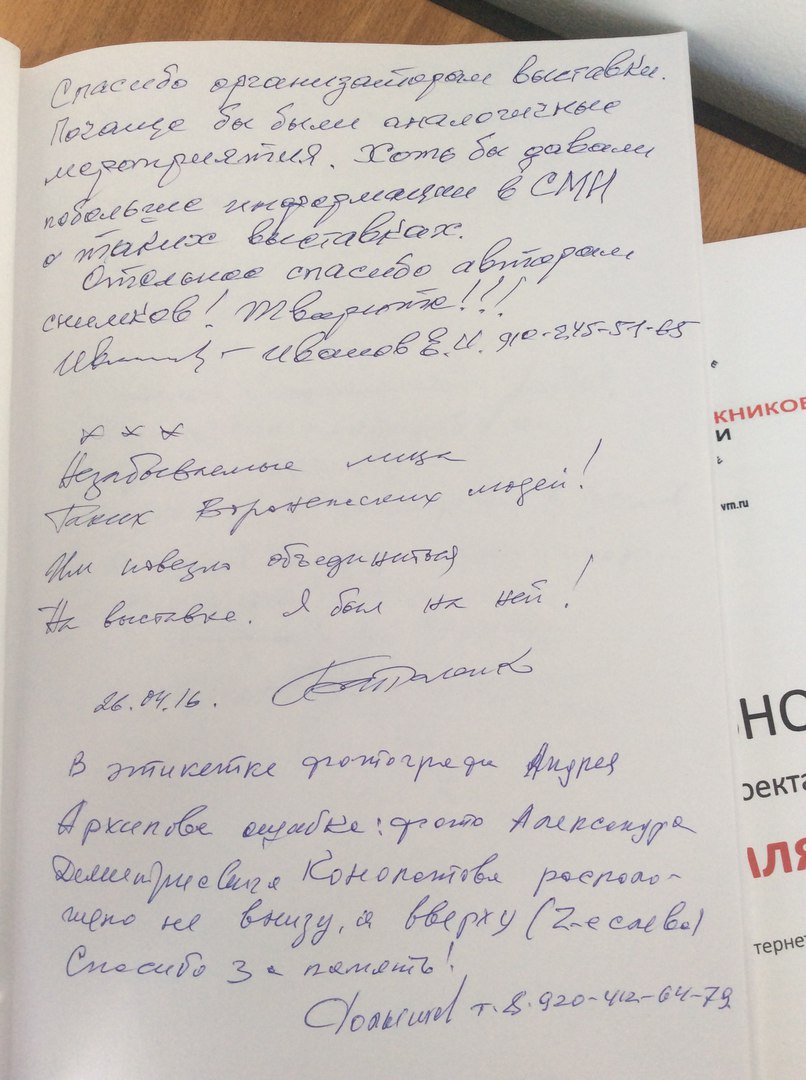 Спасибо организаторам выставки.
Почаще бы были аналогичные
мероприятия. Хоть бы давали
побольше информации в СМИ
о таких выставках.
Отельное спасибо авторам
снимков! Творите!!!
Иванов Е.И. 910-245-51-65
х х х
Незабываемые лица
Таких Воронежских людей!
Им повезло объединиться
На выставке. Я был на ней!
26.04.16.
В этикетке фотографи Андрея
Архипова ошибка: фото Александра
Деметриевича Конопатова располо-
жено не внизу, а вверху (2-е слева)
Спасибо за память!
т. 8.920-412-64-79
КНИКОВ
И
vrn.ru
НО
оекта
ЛЯ
тернет